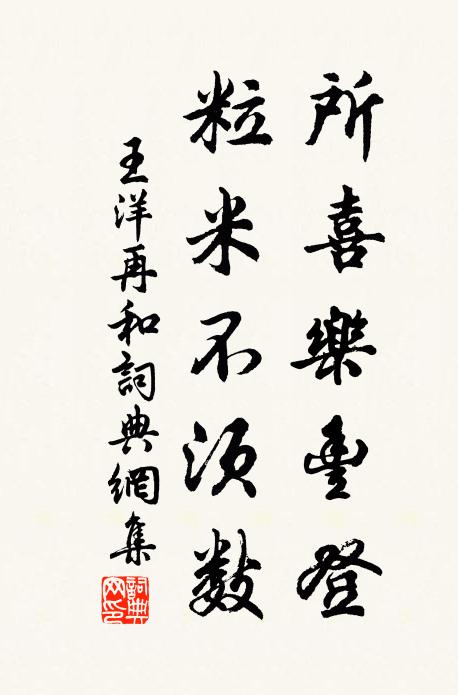 所喜樂豐登
粒米不須數
王洋再和詞典網集
詞典網印